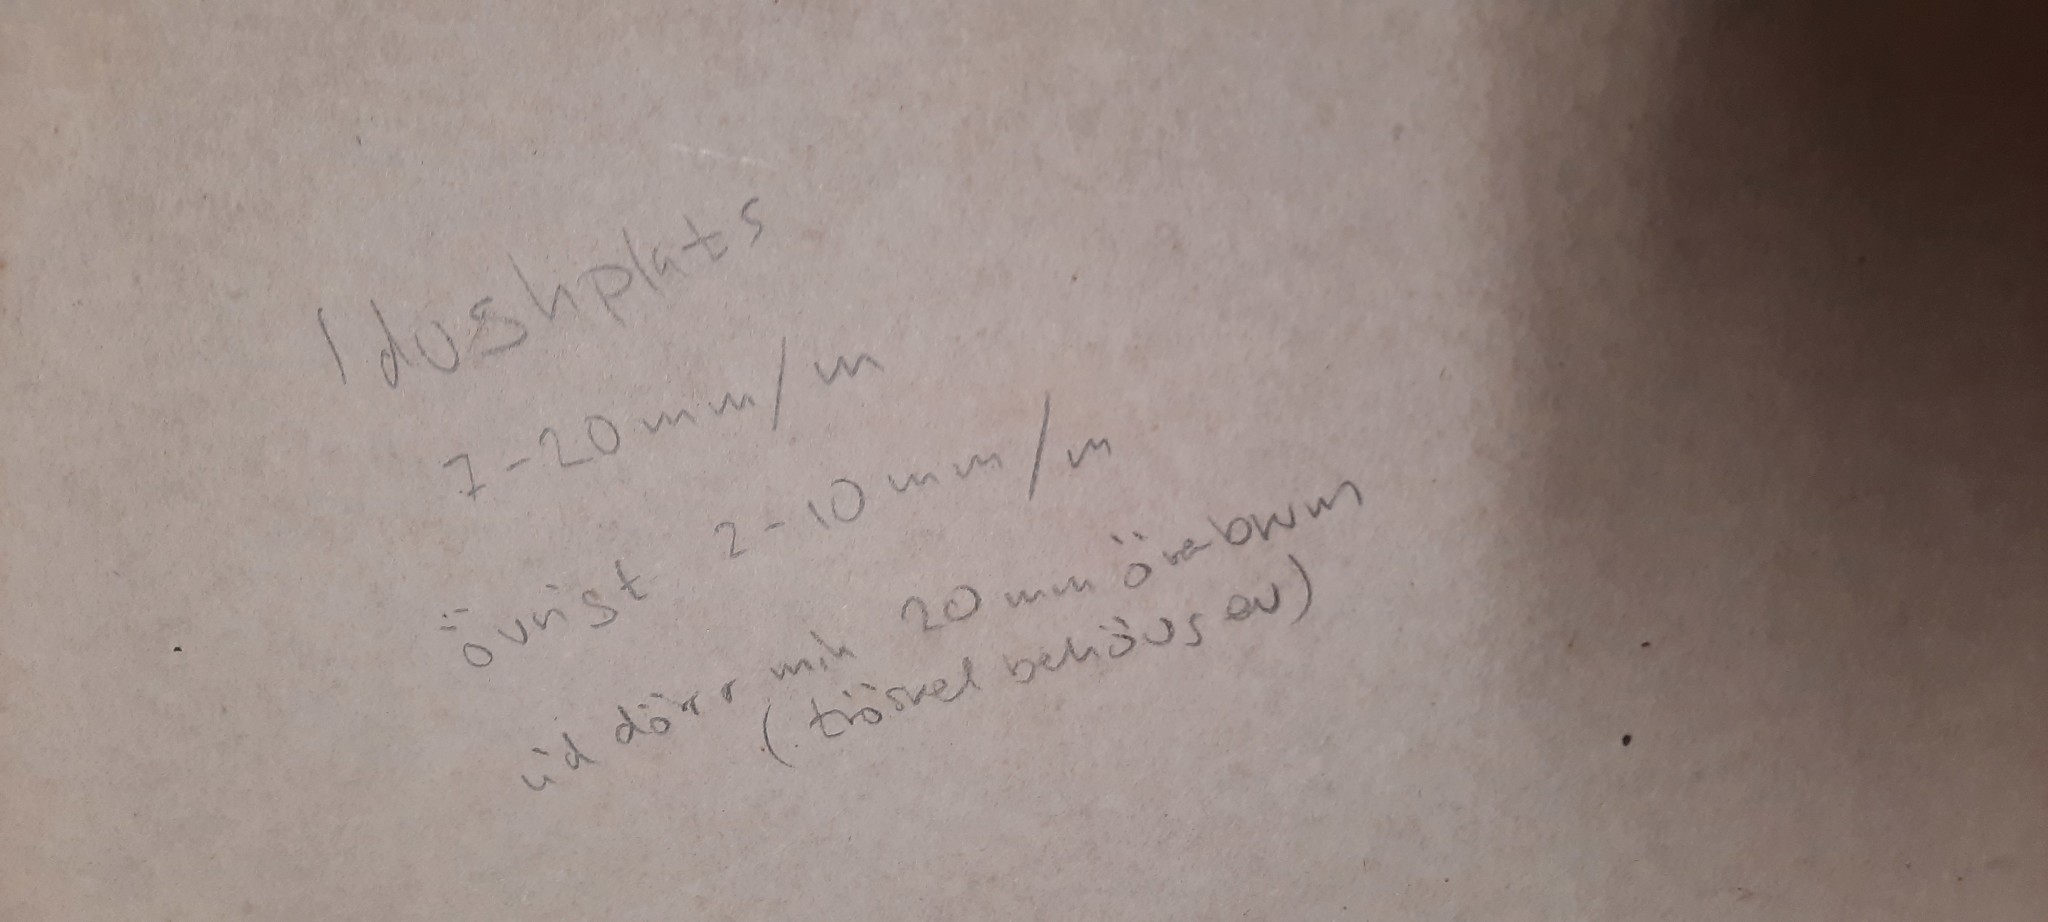 I dushplats
7-20 mm/m
övrigt 2-10 mm/m
vid dörr min 20 mm över brunn
(tröskel behövs ev)